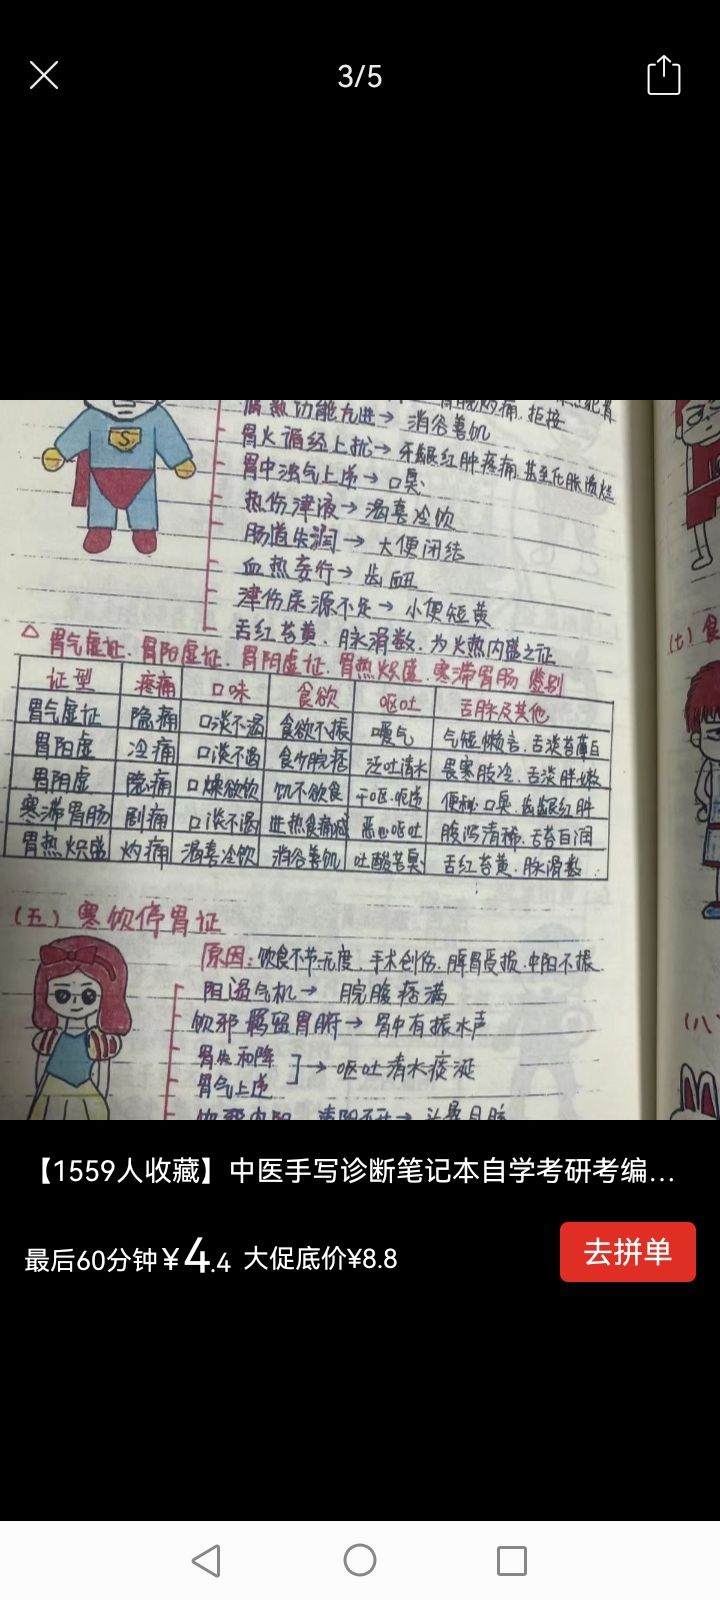 3/5
胃脘灼痛.拒按
功能亢进→消谷善饥
胃火循经上扰→牙龈红肿疼痛.甚至化脓溃烂
胃中浊气上逆→口臭
热伤津液→渴喜冷饮
肠道失润→大便闭结
血热妄行→齿衄
津伤尿源不足→小便短黄
舌红苔黄.脉滑数.为火热内盛之证
△胃气虚证.胃阳虚证.胃阴虚证.胃热炽盛.寒滞胃肠 鉴别
证型 疼痛 口味 食欲 呕吐 舌脉及其他
胃气虚证 隐痛 口淡不渴 食欲不振 嗳气 气短懒言.舌淡苔薄白
胃阳虚 冷痛 口淡不渴 食少脘痞 泛吐清水 畏寒肢冷.舌淡胖嫩
胃阴虚 隐痛 口燥欲饮 饥不欲食 干呕.呃逆 便秘.口臭.齿龈红肿
寒滞胃肠 剧痛 口淡不渴 进热食痛减 恶心呕吐 腹泻清稀.舌苔白润
胃热炽盛 灼痛 渴喜冷饮 消谷善饥 吐酸苦臭 舌红苔黄.脉滑数
(五)寒饮停胃证
原因:饮食不节.无度.手术创伤.脾胃受损.中阳不振
阻遏气机→脘腹痞满
饮邪留胃腑→胃中有振水声
胃失和降
胃气上逆 ]→呕吐清水痰涎
(七)食
(八)
S
【1559人收藏】中医手写诊断笔记本自学考研考编...
最后60分钟¥4.4 大促底价¥8.8
去拼单